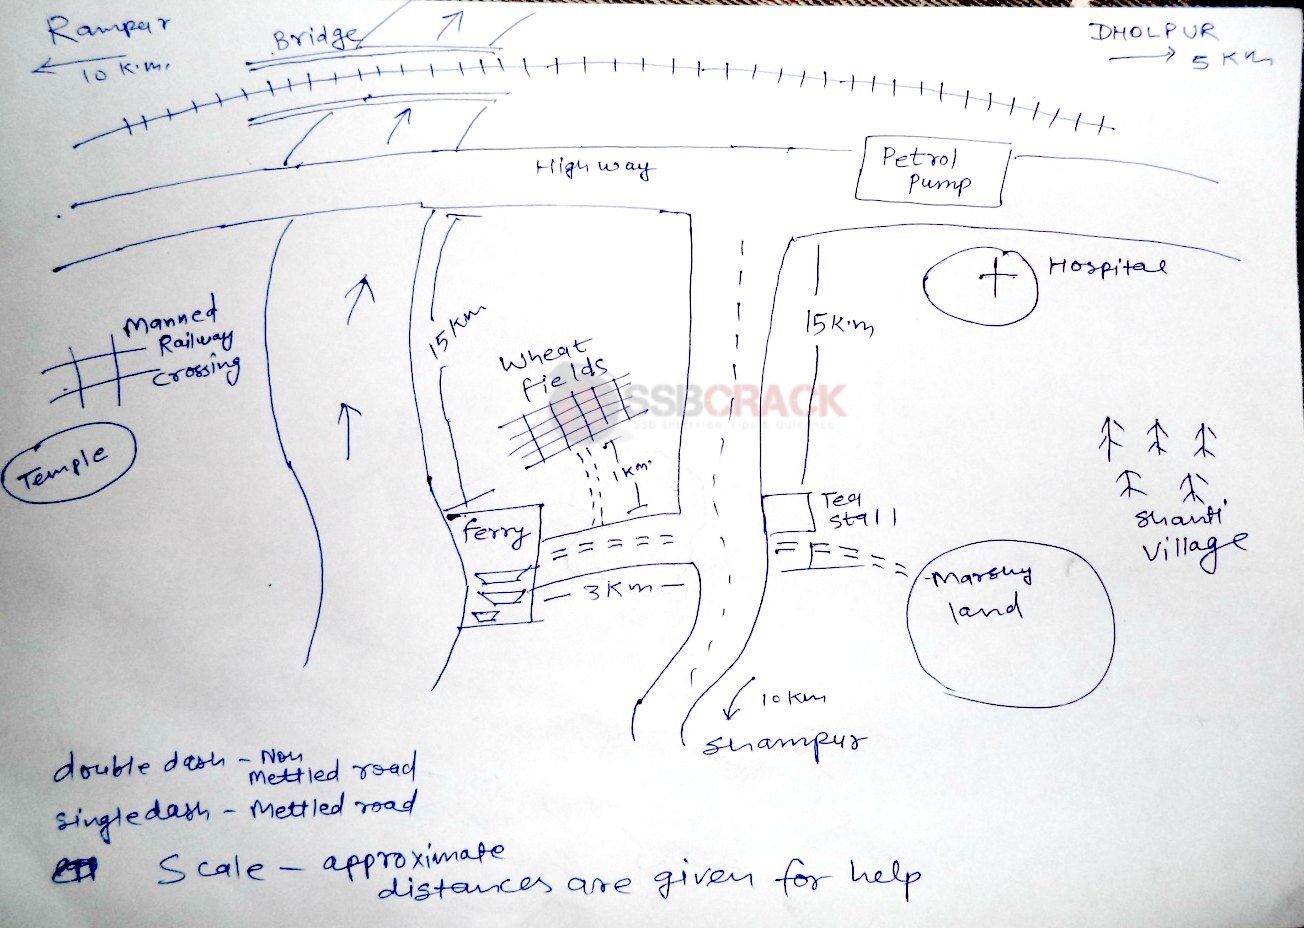 Rampur
10 K.m.
Bridge
DHOLPUR
5 Km
Highway
Petrol
Pump
Hospital
Manned
Railway
Crossing
Temple
15 Km
15 K.m
Wheat
fields
SSBCRACK
SSB Interview Tips & Guidance
1 Km.
ferry
Tea
Stall
3 Km
Marshy
land
Shanti
Village
10 Km
Shampur
double dash - Non
Mettled road
single dash - Mettled road
Scale - approximate
distances are given for help